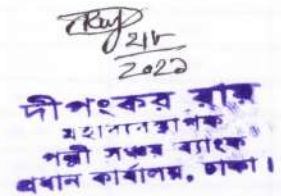 ২১৮
২০২১
দীপংকর রায়
মহাব্যবস্থাপক
পল্লী সঞ্চয় ব্যাংক
প্রধান কার্যালয়, ঢাকা।